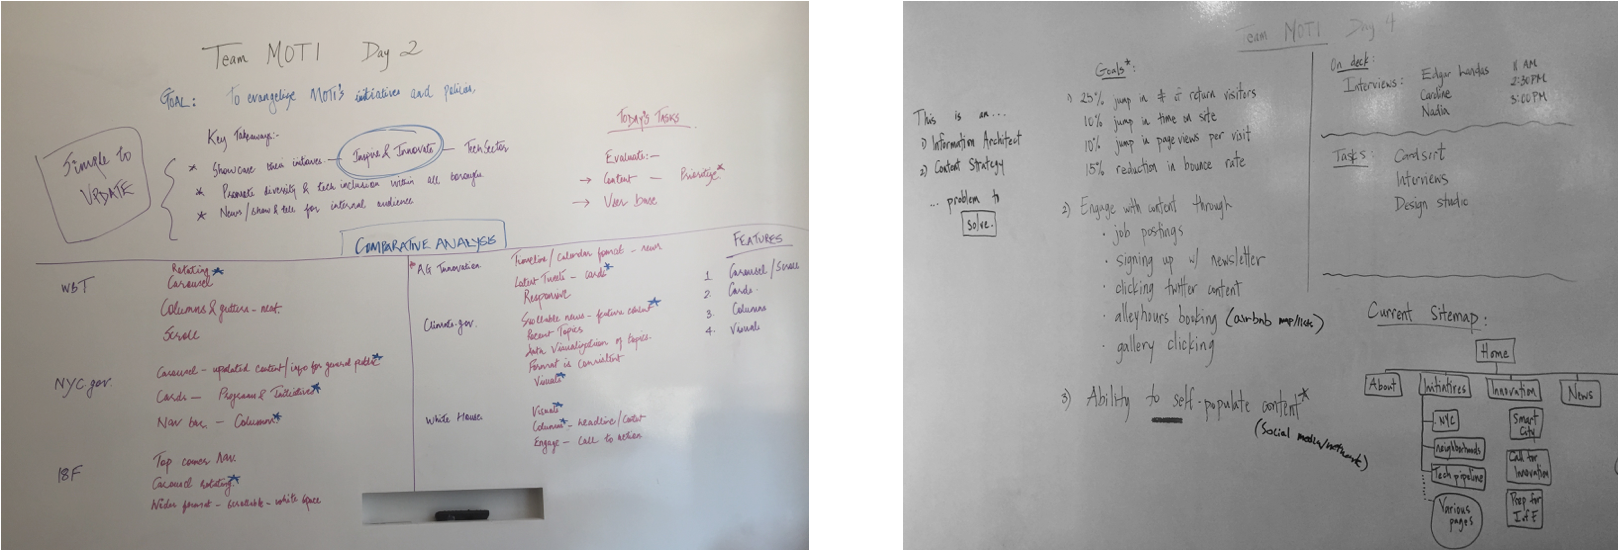 Team MOTI Day 2
GOAL: To evangelize MOTI's initiatives and policies.
Simple to
UPDATE
Key Takeaways:-
* Showcase their initiaves — Inspire & Innovate — Tech Sector
* Promote diversity & tech inclusion within all boroughs
* News/show & tell for internal audience
TODAY'S TASKS
Evaluate:-
→ Content — Prioritize*
→ User base
COMPARATIVE ANALYSIS
WBT
Rotating
Carousel
Columns & gutters - neat.
Scroll
NYC.gov.
Carousel - updated content/info for general public*
Cards — Programs & Initiatives*
Nav bar. — Columns*
18F
Top corner Nav.
Carousel rotating*
Wider format - scrollable - white space
*AG Innovation
Timeline/calendar format - news
Latest Tweets - cards*
Responsive
Climate.gov.
Scrollable news - feature content*
Recent Topics
data Visualization of topics.
Format is consistent
Visuals*
White House
Visuals*
Columns* - headline/
Engage - Call to action
FEATURES
1 Carousel/Scroll
2. Cards.
3 Columns
4. Visuals
Team MOTI Day 4
This is an...
1) Information Architect
2) Content Strategy
... problem to
solve.
Goals*:
1) 25% jump in # of return visitors
10% jump in time on site
10% jump in page views per visit
15% reduction in bounce rate
2) Engage with content through
· job postings
· signing up w/ newsletter
· clicking twitter content
· alleyhours booking (airbnb map/lists)
· gallery clicking
3) Ability to self-populate content*
(Social media/network)
On deck:
Interviews: Edgar 11 AM
Caroline 2:30PM
Nadia 3:00PM
Tasks: Cardsort
Interviews
Design studio
Current Sitemap:
Home
About Initiatives Innovation News
NYC
neighborhoods
Tech pipeline
Various
pages
Smart
City
Call for
Innovation
Prep for
I of E